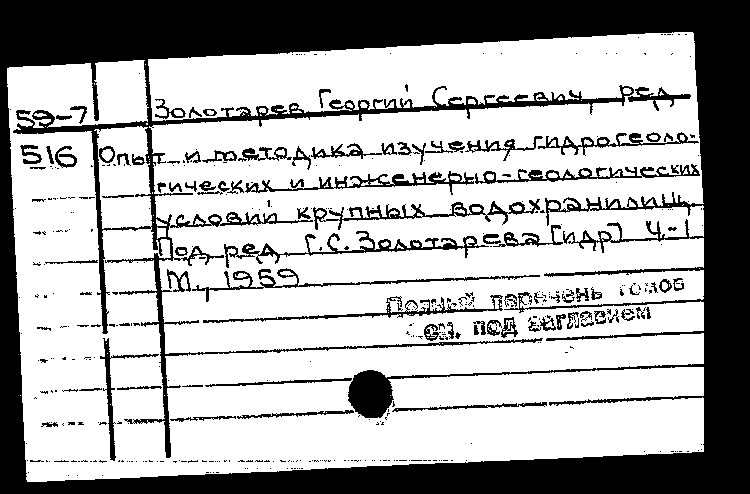 59-7 Золотарев, Георгий Сергеевич, ред.
516 Опыт и методика изучения гидрогеоло-
гических и инженерно-геологических
условий крупных водохранилищ.
Под ред. Г.С. Золотарева [и др] Ч-1
М., 1959
Полный перечень томов
см. под заглавием